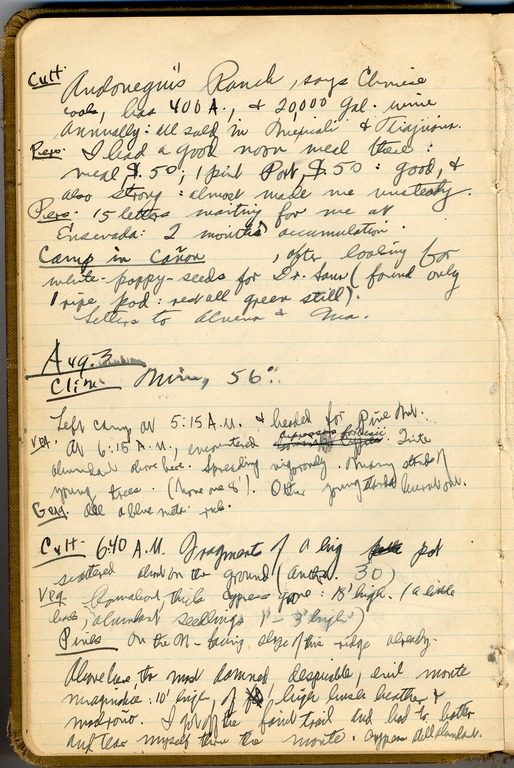 Cult. Andonegui's Ranch, says Chinese
cook, has 400 A., & 20,000 gal. wine
annually: all sold in Mexicali & Tiajuana.
Pers. I had a good noon meal there:
meal, $.50; 1 pint Port, $.50: good, &
also strong: almost made me unsteady.
Pers. 15 letters waiting for me at
Ensenada: 2 months accumulation.
Camp in Cañon, after looking for
white-poppy-seeds for Dr. (found only
1 ripe pod: rest all green still).
Letters to Alvena & Ma.
Aug. 3
Clim. Min, 56°.
Left camp at 5:15 A.M. & headed for Pine Mt.
Veg. At 6:15 A.M., encountered Cupressus Forbesii. Quite
abundant above here. Spreading vigorously. Many stands of
young trees. (None over 8'). Other young stands burnt out.
Geog. All above meta. rock.
Cult. 6:40 A.M. Fragments of a big pot
scattered about on the ground (Anthr. 30)
Veg. Somewhat thick cypress grove: 18' high. (a little
back, abundant seedlings 1'-3' high)
Pines On the N-facing slope of this ridge already.
Above here the most damned despicable, evil monte
imaginable: 10' high, of high brush heather &
madrono. I got off the faint trail and had to batter
and tear myself thru the monte. Cypress still abundant.